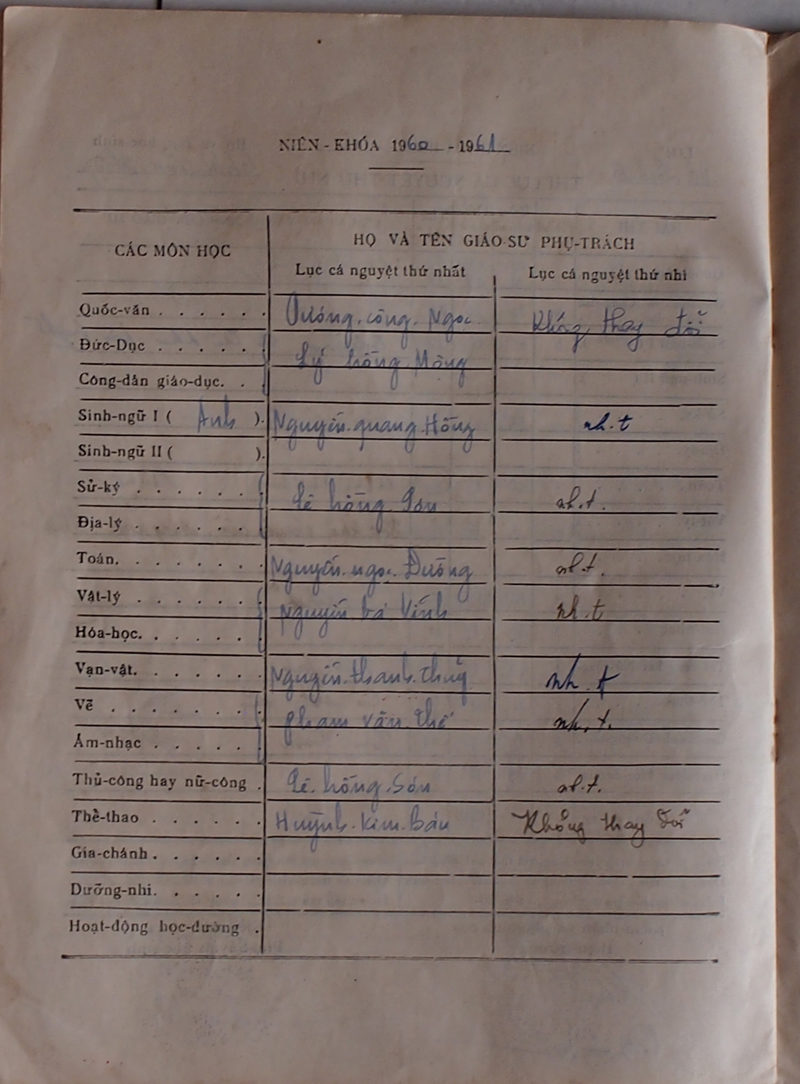 NIÊN-KHÓA 1960 - 1961
CÁC MÔN HỌC
HỌ VÀ TÊN GIÁO-SƯ PHỤ-TRÁCH
Lục cá nguyệt thứ nhất
Lục cá nguyệt thứ nhì
Quốc-văn . . . . . . Dương. công. Ngọc Không thay đổi
Đức-Dục . . . . . Lý hồng Mộng
Công-dân giáo-dục. .
Sinh-ngữ I ( Anh ). Nguyễn. quang. Hồng nh.t
Sinh-ngữ II ( ).
Sử-ký . . . . . . Lê hồng Sơn nh.t.
Địa-lý . . . . . .
Toán. . . . . . . Nguyễn. ngọc. Đường nh.t.
Vật-lý . . . . . . Nguyễn bá Vĩnh nh.t
Hóa-học. . . . . .
Vạn-vật. . . . . . Nguyễn. thanh. thuỷ nh.t
Vẽ . . . . . . . phạm văn thế nh.t.
Âm-nhạc . . . . .
Thủ-công hay nữ-công . Lê. hồng. Sơn nh.t.
Thể-thao . . . . . Huỳnh. Kim. Báu Không thay đổi
Gia-chánh . . . . .
Dưỡng-nhi. . . . .
Hoạt-động học-đường .